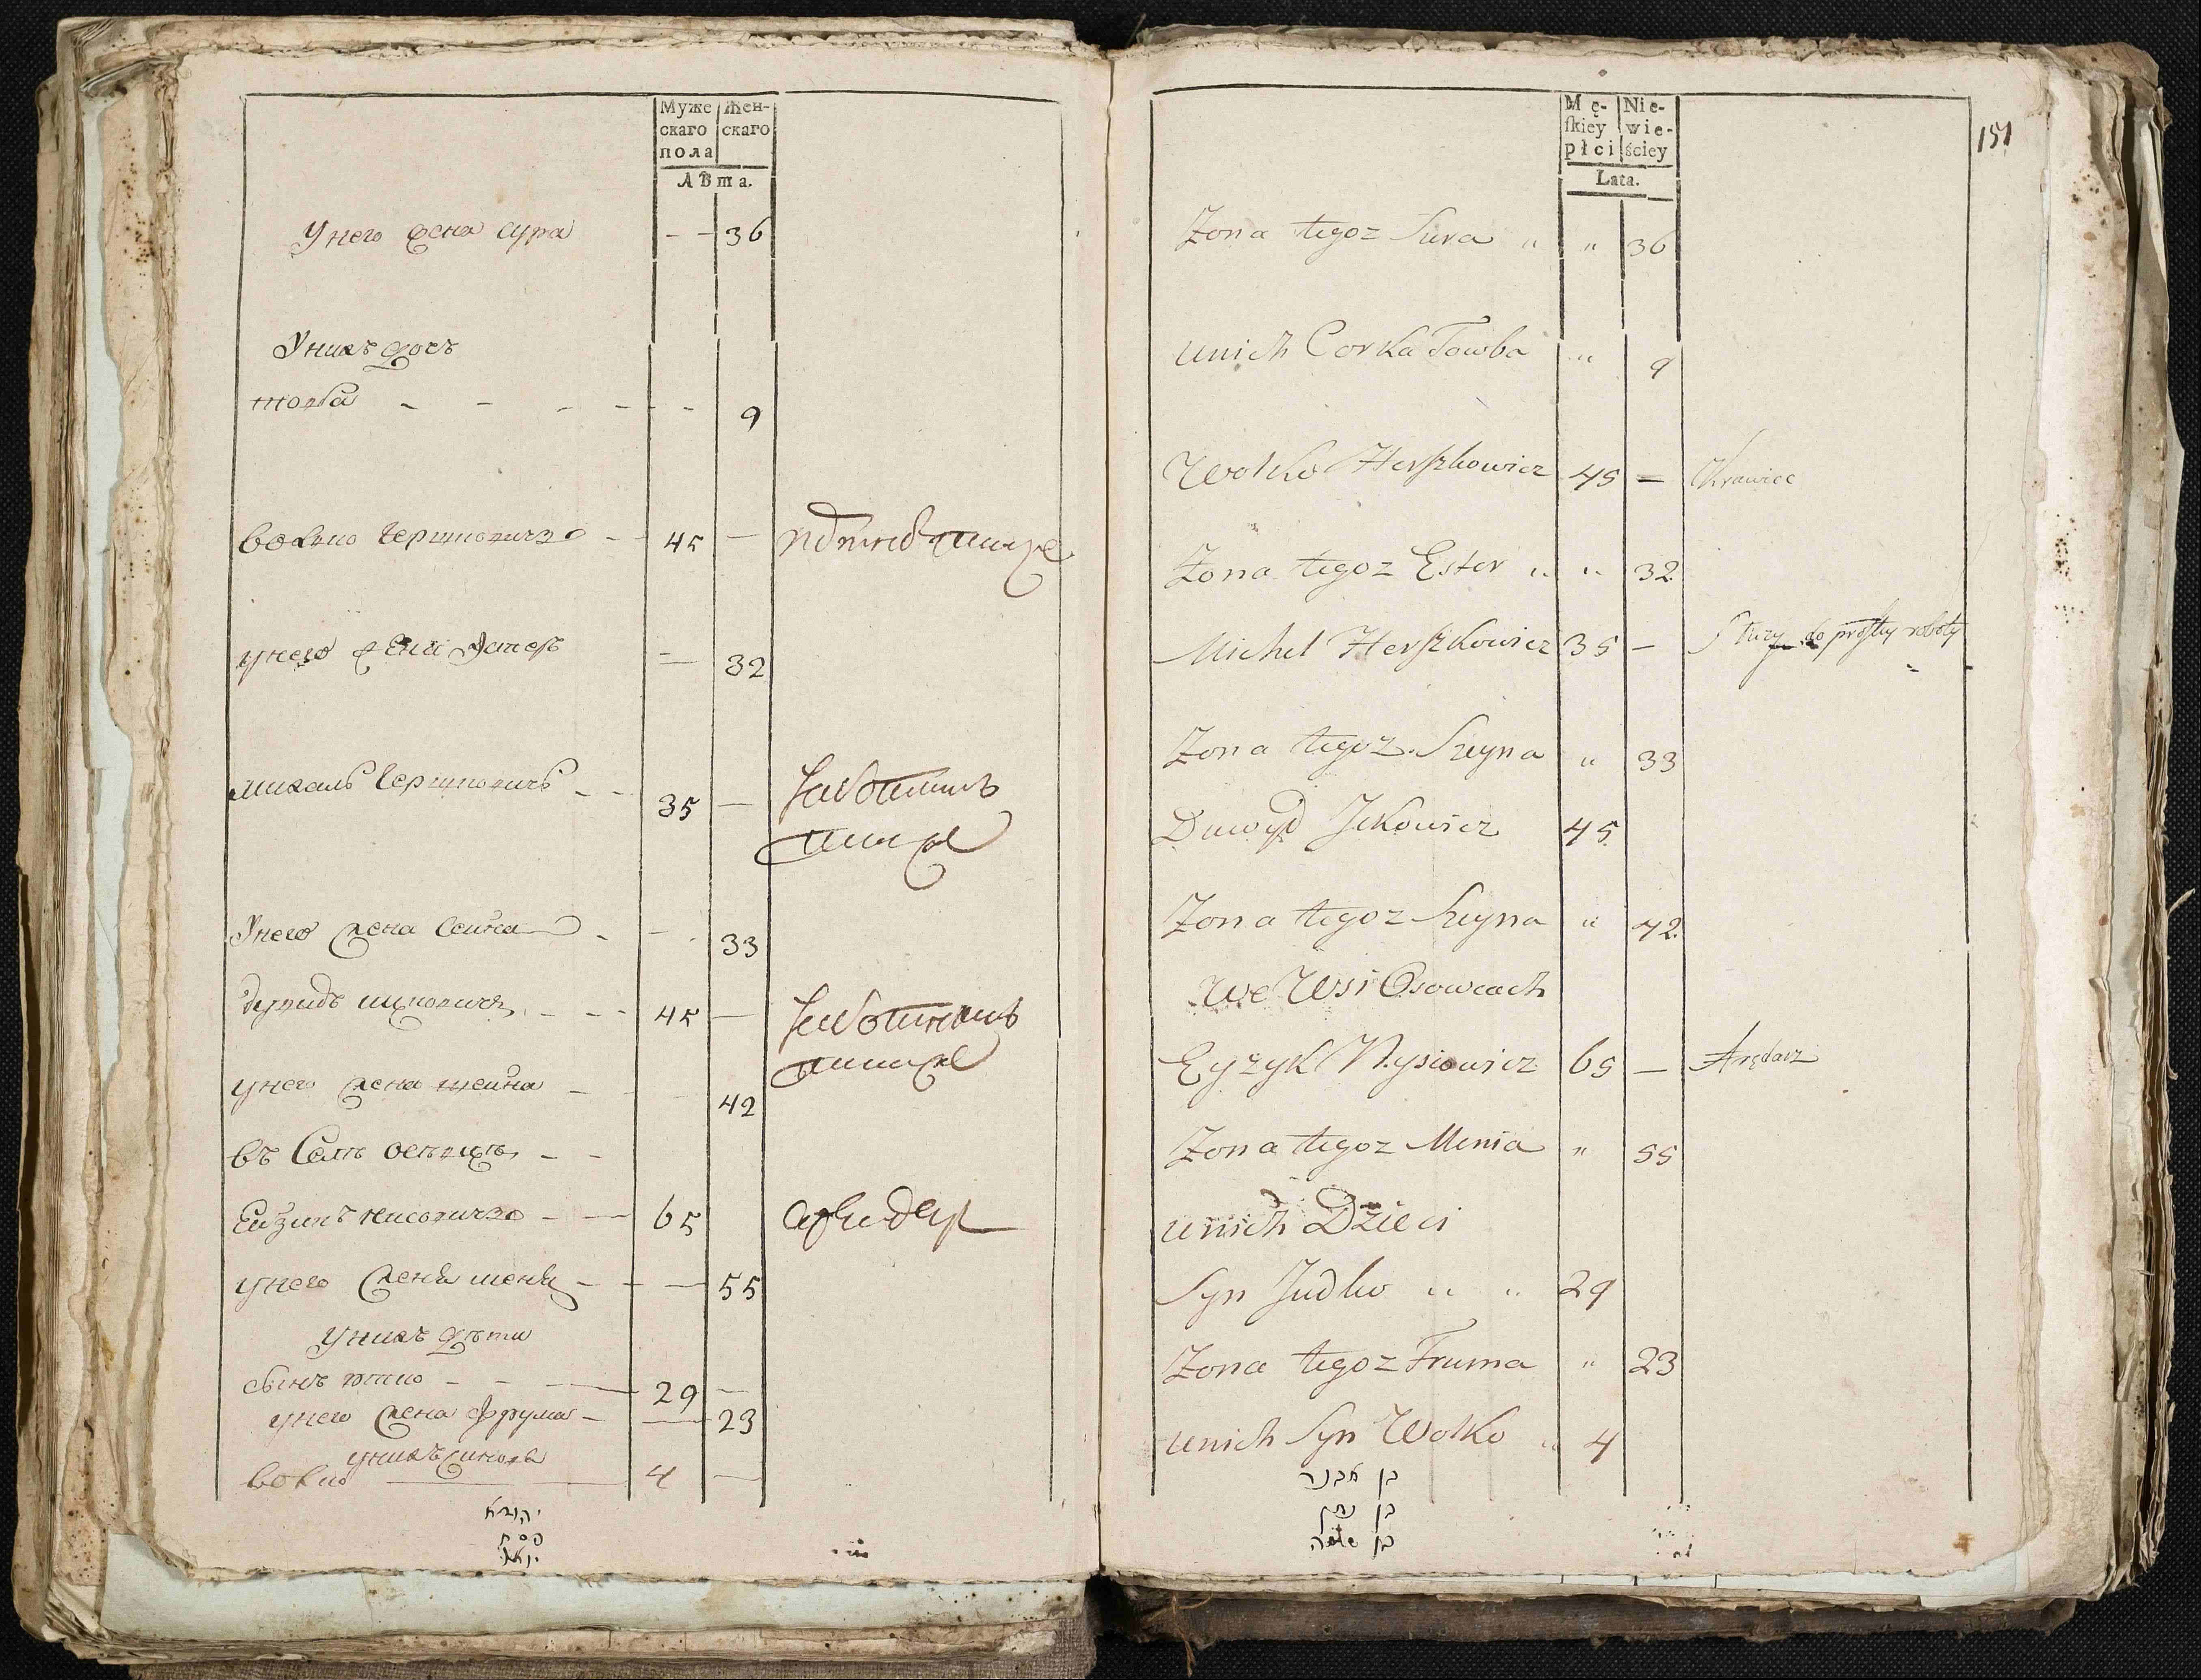 Муже Жен-
скаго скаго
пола
Лѣта.
У него жена сура - - 36
У нихъ дочь
товба - - - - - - 9
вовко гершковичъ - 45 —
у него жена Эстеръ — 32
михаль гершковичъ - - 35 —
У него жена сейна - - 33
давидъ ицковичъ - - - 45 —
у него жена шейна - 42
въ Селѣ осовцахъ - -
Ейзикъ нисовичъ - — 65 арендаръ
у него жена меня - - — 55
У нихъ дѣти
сынъ юдко - - — 29 —
у него жена фрума - — 23
у нихъ сыновя
вовко — 4 —
151
Mę- Nie-
ſkiey wie-
płci ściey
Lata.
Zona tegoz Sura „ „ 36
unich Corka Towba „ 9
Wolko Herszkowicz 45 — Krawiec
Zona tegoz Ester „ „ 32
Michel Herszkowicz 35 — Słuzy do prostey roboty
Zona tegoz Szeyna „ 33
Dawyd Jckowicz 45
Zona tegoz Szeyna „ 42
We Wsi Osowcach
Eyzyk Nysiowicz 65 — Arędarz
Zona tegoz Menia „ 55
unich Dzieci
Syn Judko „ „ 29
Zona tegoz Fruma „ 23
unich Syn Wolko „ 4
בן אבנר
בן נתן
בן שלמה